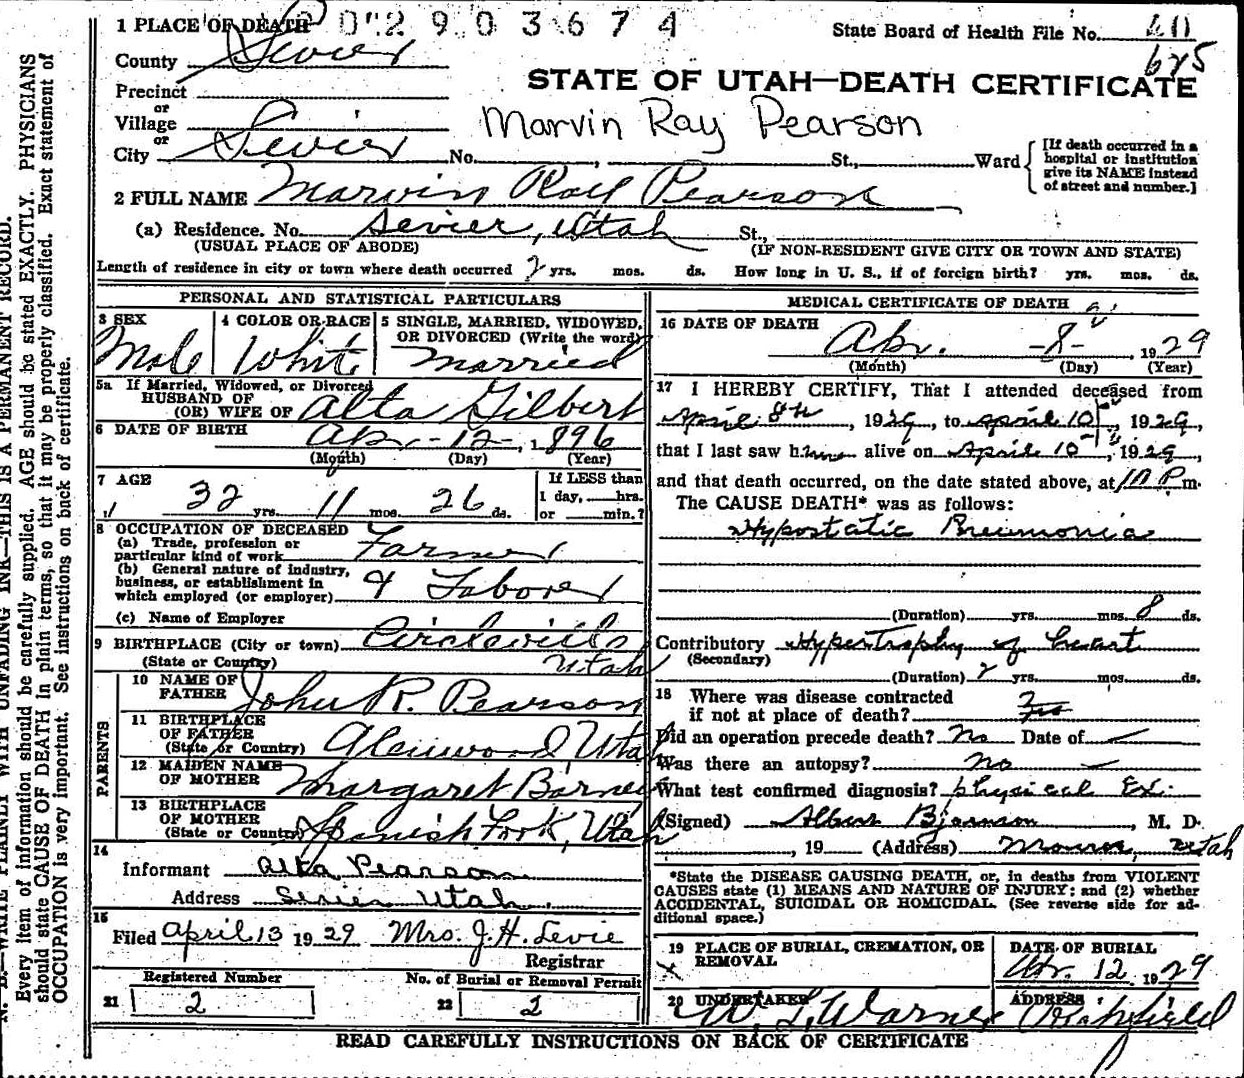 1 PLACE OF DEATH 0 2 9 0 3 6 7 4 State Board of Health File No.
County Sevier 675
STATE OF UTAH—DEATH CERTIFICATE
Precinct
or
Village
Marvin Ray Pearson
or
City Sevier No. , St., Ward
[If death occurred in a hospital or institution give its NAME instead of street and number.]
2 FULL NAME Marvin Pearson
(a) Residence. No. Sevier, Utah St.,
(USUAL PLACE OF ABODE) (IF NON-RESIDENT GIVE CITY OR TOWN AND STATE)
Length of residence in city or town where death occurred 2 yrs. mos. ds. How long in U. S., if of foreign birth? yrs. mos. ds.
PERSONAL AND STATISTICAL PARTICULARS
3 SEX 4 COLOR OR RACE 5 SINGLE, MARRIED, WIDOWED,
OR DIVORCED (Write the word)
Male White Married
5a If Married, Widowed, or Divorced
HUSBAND OF
(OR) WIFE OF Alta Gilbert
6 DATE OF BIRTH Ap. - 12 - , 1896
(Month) (Day) (Year)
7 AGE If LESS than
1 day, hrs.
32 yrs. 11 mos. 26 ds. or min.?
8 OCCUPATION OF DECEASED
(a) Trade, profession or
particular kind of work Farmer
(b) General nature of industry,
business, or establishment in
which employed (or employer) & Laborer
(c) Name of Employer
9 BIRTHPLACE (City or town) Circleville
(State or Country) Utah
PARENTS
10 NAME OF
FATHER John R. Pearson
11 BIRTHPLACE
OF FATHER
(State or Country) Glenwood, Utah
12 MAIDEN NAME
OF MOTHER Margaret Barney
13 BIRTHPLACE
OF MOTHER
(State or Country) Spanish Fork, Utah
14
Informant Alta Pearson
Address Sevier Utah.
15
Filed April 13 1929 Mrs. J. H. Levie
Registrar
Registered Number No. of Burial or Removal Permit
21 2 22 2
MEDICAL CERTIFICATE OF DEATH
16 DATE OF DEATH
Apr. -8- , 1929
(Month) (Day) (Year)
17 I HEREBY CERTIFY, That I attended deceased from
April 8th, 1929, to April 10, 1929,
that I last saw him alive on April 10, 1929,
and that death occurred, on the date stated above, at 10 P m.
The CAUSE DEATH* was as follows:
Hypostatic Pneumonia
(Duration) yrs. mos. 8 ds.
Contributory Hypertrophy of heart
(Secondary)
(Duration) 2 yrs. mos. ds.
18 Where was disease contracted
if not at place of death?
Did an operation precede death? No Date of
Was there an autopsy? no
What test confirmed diagnosis? physical Ex.
(Signed) Albert , M. D.
, 19 (Address) Monroe, Utah
*State the DISEASE CAUSING DEATH, or, in deaths from VIOLENT
CAUSES state (1) MEANS AND NATURE OF INJURY; and (2) whether
ACCIDENTAL, SUICIDAL OR HOMICIDAL. (See reverse side for ad-
ditional space.)
19 PLACE OF BURIAL, CREMATION, OR
REMOVAL
DATE OF BURIAL
Apr. 12 1929
20 UNDERTAKER ADDRESS
W. L. Warner Richfield
READ CAREFULLY INSTRUCTIONS ON BACK OF CERTIFICATE
N. B.—WRITE PLAINLY WITH UNFADING INK—THIS IS A PERMANENT RECORD.
Every item of information should be carefully supplied. AGE should be stated EXACTLY. PHYSICIANS
should state CAUSE OF DEATH in plain terms, so that it may be properly classified. Exact statement of
OCCUPATION is very important. See instructions on back of certificate.